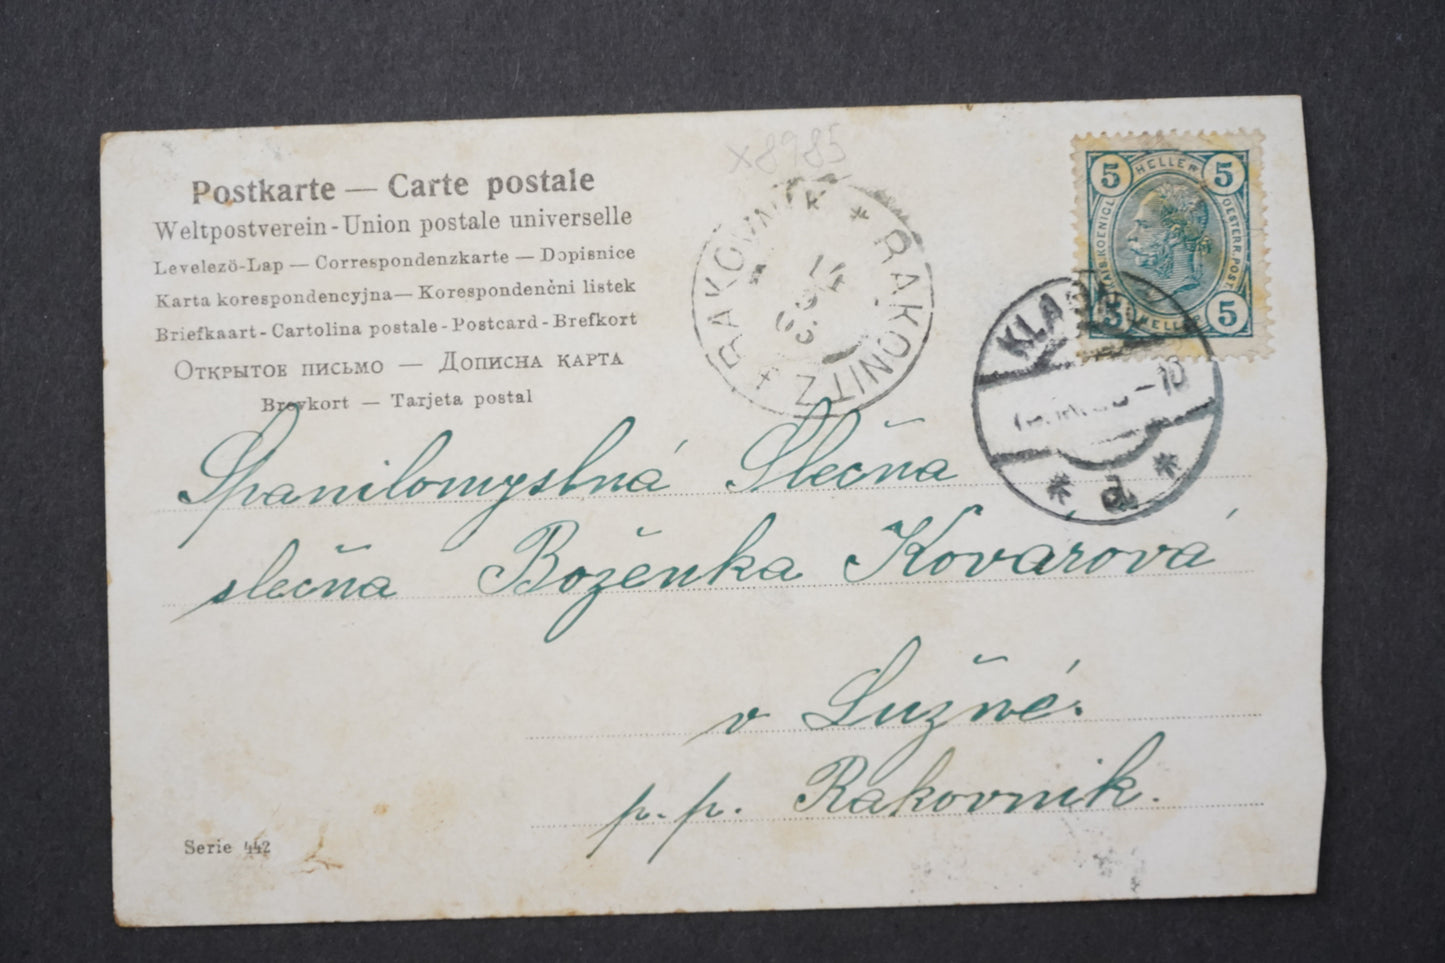 x8985
Postkarte — Carte postale
Weltpostverein - Union postale universelle
Levelezö-Lap — Correspondenzkarte — Dopisnice
Karta korespondencyjna — Korespondenčni listek
Briefkaart - Cartolina postale - Postcard - Brefkort
Открытое письмо — Дописна карта
Brevkort — Tarjeta postal
RAKOVNÍK * RAKONITZ *
5 HELLER 5
KAIS. KOENIGL. OESTERR. POST
5 HELLER 5
d
Spanilomyslná Slečna
slečna Boženka Kovarová
v Lužné.
p. p. Rakovník.
Serie 442